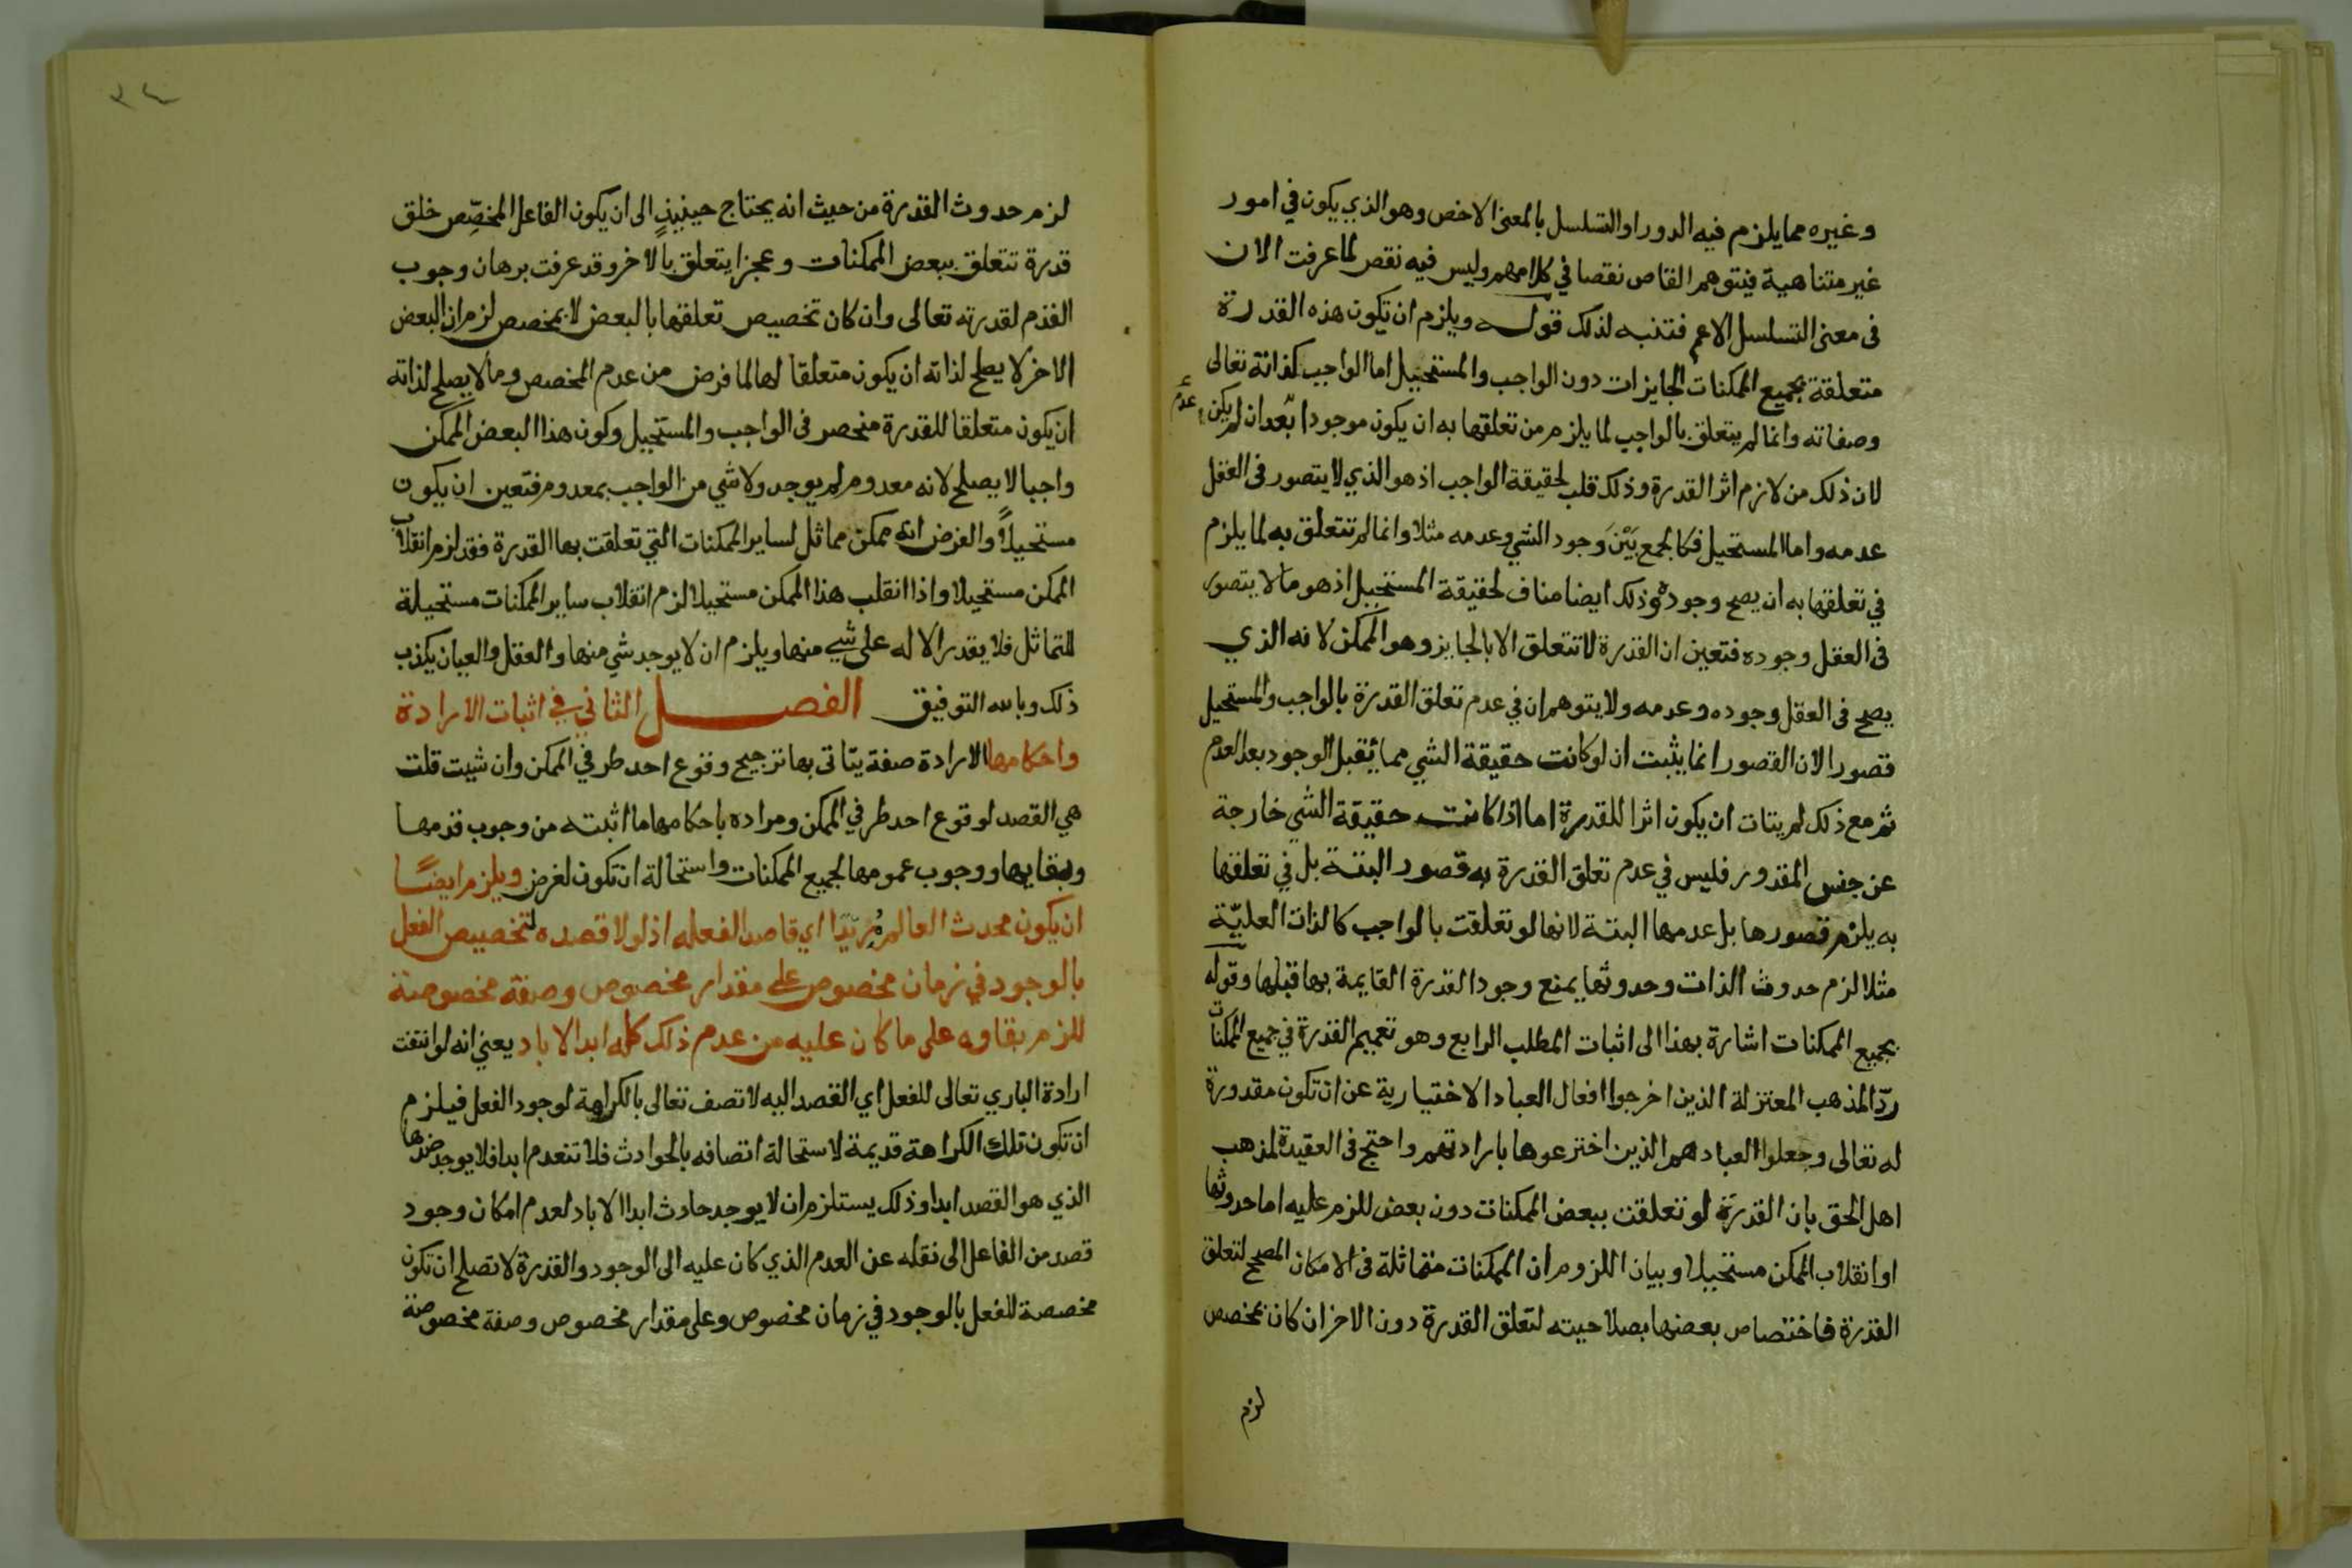 وغيره مما يلزم فيه الدور او التسلسل بالمعنى الاخص وهو الذي يكون في امور
غير متناهية فيتوهم القاص نقصا في كلامهم وليس فيه نقص لما عرفت الان
في معنى التسلسل الاعم فتنبه لذلك قوله ويلزم ان تكون هذه القدرة
متعلقة بجميع الممكنات الجايزات دون الواجب والمستحيل اما الواجب كذاته تعالى
وصفاته وانما لم يتعلق بالواجب لما يلزم من تعلقها به ان يكون موجودا بعد ان لم يكن
عدم
لان ذلك من لازم اثر القدرة وذلك قلب لحقيقة الواجب اذ هو الذي لا يتصور في العقل
عدمه واما المستحيل فكالجمع بَيْنَ وجود الشي وعدمه مثلا وانما لم تتعلق به لما يلزم
في تعلقها به ان يصح وجوده وذلك ايضا مناف لحقيقة المستحيل اذ هو ما لا يتصور
في العقل وجوده فتعين ان القدرة لا تتعلق الا بالجايز وهو الممكن لانه الذي
يصح في العقل وجوده وعدمه ولا يتوهم ان في عدم تعلق القدرة بالواجب والمستحيل
قصورا لان القصور انما يثبت ان لو كانت حقيقة الشي مما يقبل الوجود بعد العدم
ثم مع ذلك لم يتات ان يكون اثرا للقدرة اما اذا كانت حقيقة الشي خارجة
عن جنس المقدور فليس في عدم تعلق القدرة به قصور البتة بل في تعلقها
به يلزم قصورها بل عدمها البتة لانها لو تعلقت بالواجب كالذات العليّة
مثلا لزم حدوث الذات وحدوثها يمنع وجود القدرة القايمة بها قبلها وقوله
بجميع الممكنات اشارة بهذا الى اثبات المطلب الرابع وهو تعميم القدرة في جميع الممكنات
ردّا لمذهب المعتزلة الذين اخرجوا افعال العباد الاختيارية عن ان تكون مقدورة
له تعالى وجعلوا العباد هم الذين اخترعوها بارادتهم واحتج في العقيدة لمذهب
اهل الحق بان القدرة لو تعلقت ببعض الممكنات دون بعض للزم عليه اما حدوثها
او انقلاب الممكن مستحيلا وبيان اللزوم ان الممكنات متماثلة في الامكان المصحح لتعلق
القدرة فاختصاص بعضها بصلاحيته لتعلق القدرة دون الاخر ان كان بمخصص
لزم
٣٤
لزم حدوث القدرة من حيث انه يحتاج حينيذٍ الى ان يكون الفاعل المخصِّص خلق
قدرة تتعلق ببعض الممكنات وعجزا يتعلق بالاخر وقد عرفت برهان وجوب
القدم لقدرته تعالى وان كان تخصيص تعلقها بالبعض لا بمخصص لزم ان البعض
الاخر لا يصلح لذاته ان يكون متعلقا لها لما فرض من عدم المخصص وما لا يصلح لذاته
ان يكون متعلقا للقدرة منحصر في الواجب والمستحيل وكون هذا البعض الممكن
واجبا لا يصلح لانه معدوم لم يوجد ولا شي من الواجب بمعدوم فتعين ان يكون
مستحيلاً والفرض انه ممكن مماثل لساير الممكنات التي تعلقت بها القدرة فقد لزم انقلاب
الممكن مستحيلا واذا انقلب هذا الممكن مستحيلا لزم انقلاب ساير الممكنات مستحيلة
للتماثل فلا يقدر الاله على شيي منها ويلزم ان لا يوجد شي منها والعقل والعيان يكذب
ذلك وبالله التوفيق الفصل الثاني في اثبات الارادة
واحكامها الارادة صفة يتاتى بها ترجيح وقوع احد طرفي الممكن وان شيت قلت
هي القصد لوقوع احد طرفي الممكن ومراده باحكامها ما اثبته من وجوب قدمها
وبقايها ووجوب عمومها لجميع الممكنات واستحالة ان تكون لغرض ويلزم ايضًا
ان يكون محدث العالم مُرِيدًا اي قاصدا لفعله اذ لولا قصده لتخصيص الفعل
بالوجود في زمان مخصوص على مقدار مخصوص وصفة مخصوصة
للزم بقاوه على ما كان عليه من عدم ذلك كله ابد الاباد يعني انه لو انتفت
ارادة الباري تعالى للفعل اي القصد اليه لاتصف تعالى بالكراهة لوجود الفعل فيلزم
ان تكون تلك الكراهة قديمة لاستحالة اتصافه بالحوادث فلا تنعدم ابدا فلا يوجد ضدها
الذي هو القصد ابدا وذلك يستلزم ان لا يوجد حادث ابد الاباد لعدم امكان وجود
قصد من الفاعل الى نقله عن العدم الذي كان عليه الى الوجود والقدرة لا تصلح ان تكون
مخصصة للفعل بالوجود في زمان مخصوص وعلى مقدار مخصوص وصفة مخصوصة